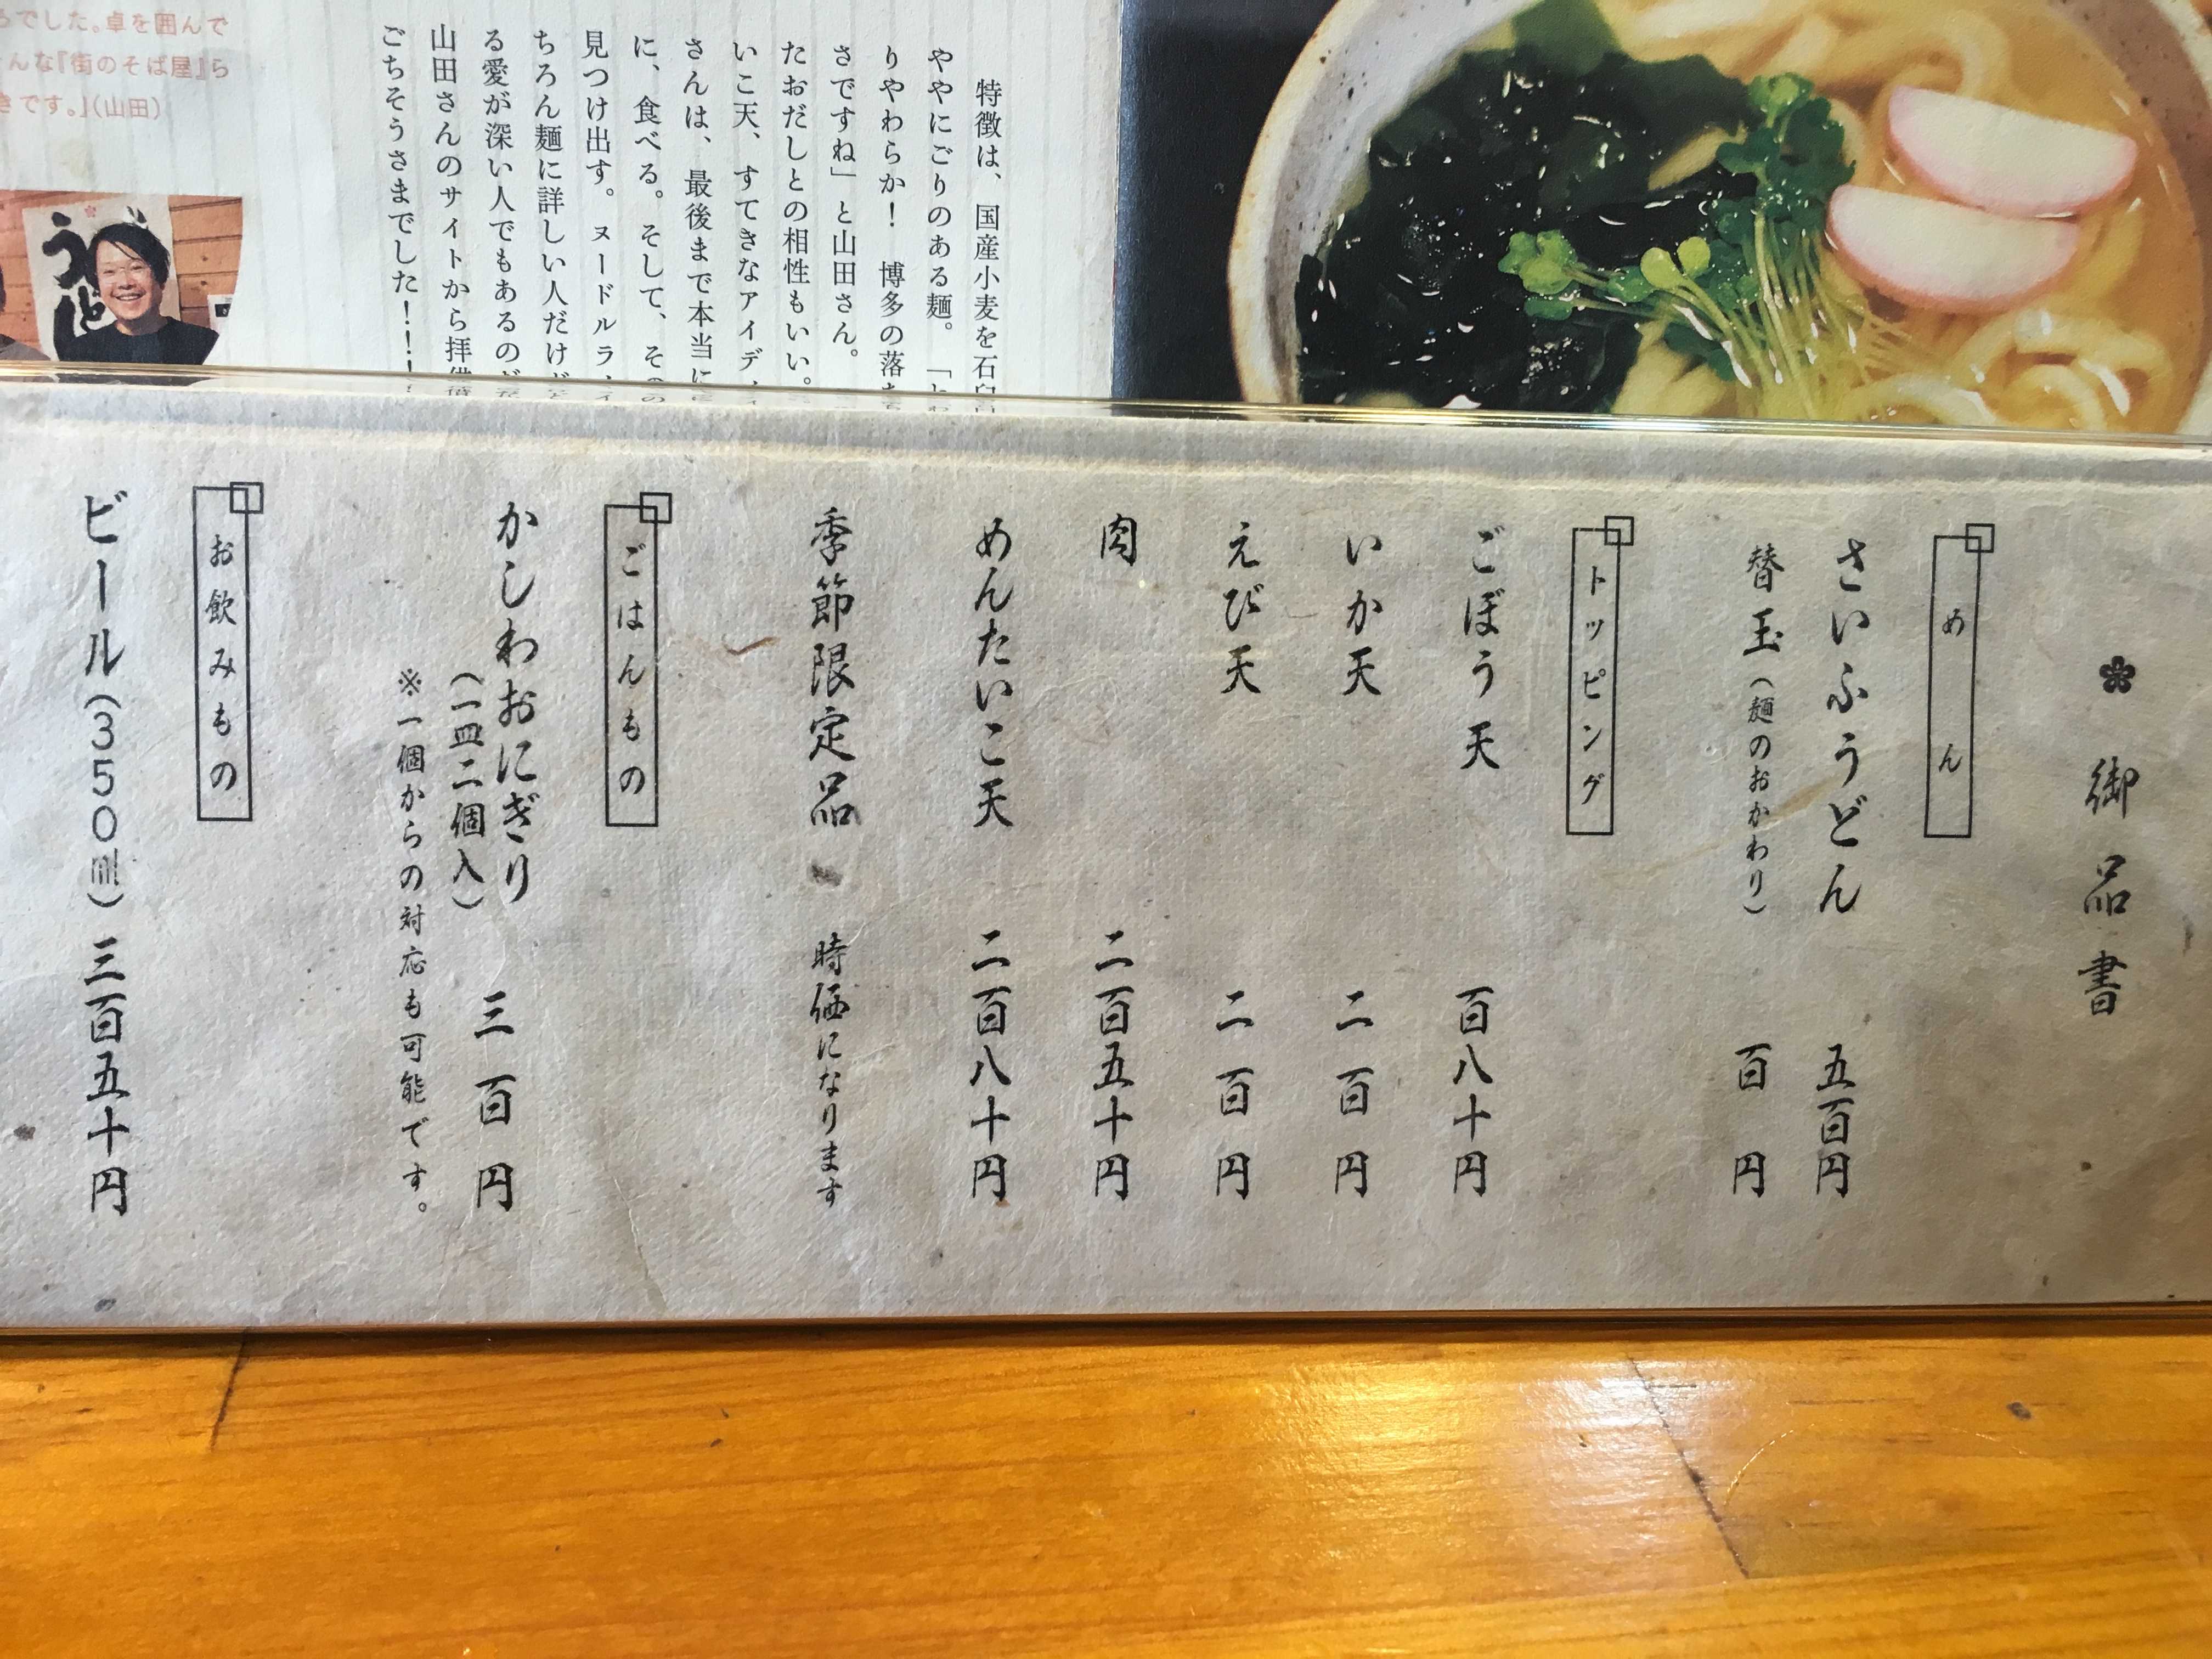 特徴は、国産小麦を石臼
ややにごりのある麺。「や
りやわらか！ 博多の落
さですね」と山田さん。
たおだしとの相性もいい。
いこ天、すてきなアイデ
さんは、最後まで本当に
に、食べる。そして、その
見つけ出す。ヌードルラ
ちろん麺に詳しい人だけど
る愛が深い人でもあるの
山田さんのサイトから拝借
ごちそうさまでした！！！
でした。卓を囲んで
んな『街のそば屋』ら
きです。」（山田）
うどん
御品書
めん
さいふうどん 五百円
替玉（麺のおかわり） 百円
トッピング
ごぼう天 百八十円
いか天 二百円
えび天 二百円
肉 二百五十円
めんたいこ天 二百八十円
季節限定品 時価になります
ごはんもの
かしわおにぎり 三百円
（一皿二個入）
※一個からの対応も可能です。
お飲みもの
ビール（350㎖） 三百五十円